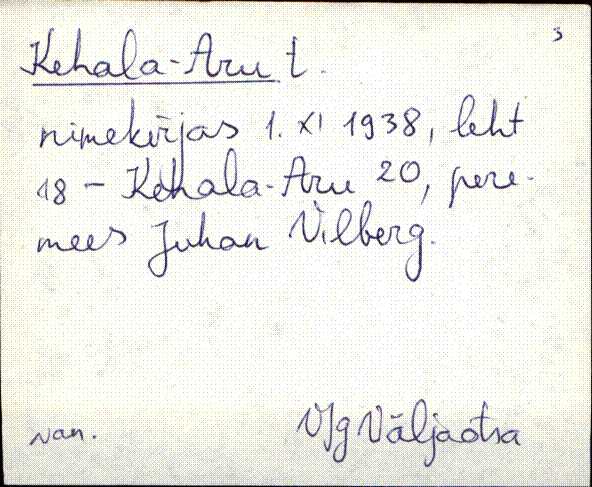 3
Kehala-Aru t.
nimekirjas 1. XI 1938, leht
18 – Kehala-Aru 20, pere-
mees Juhan Vilberg.
van. VJg Väljaotsa